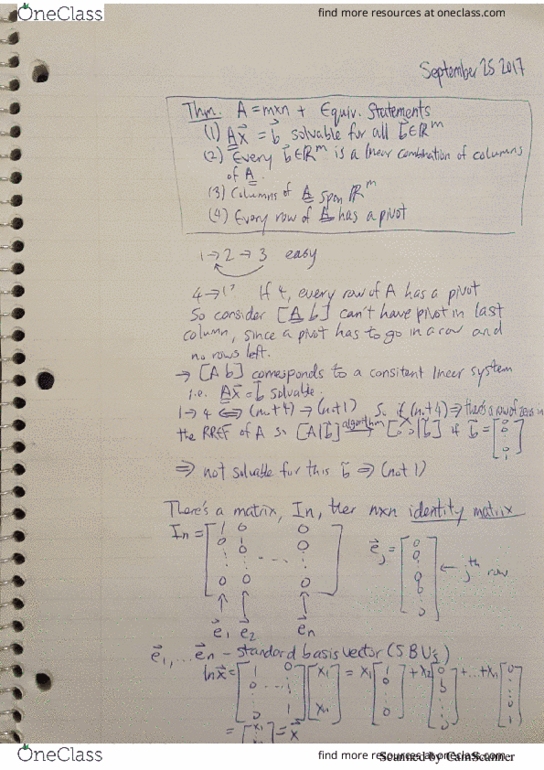 OneClass
find more resources at oneclass.com
September 25 2017
Thm. A = m×n + Equiv. Statements
(1) Ax⃗ = b⃗ solvable for all b⃗∈ℝᵐ
(2) Every b⃗∈ℝᵐ is a linear combination of columns
of A.
(3) Columns of A span ℝᵐ
(4) Every row of A has a pivot
1→2→3 easy
4→1: If 4, every row of A has a pivot
So consider [A b] can't have pivot in last
column, since a pivot has to go in a row and
no rows left.
→ [A b] corresponds to a consitent linear system
i.e. Ax⃗=b⃗ solvable.
1→4 ⟺ (not 4) → (not 1) So if (not 4) ⇒ there's a row of zeros in
the RREF of A so [A|b⃗] algorithm→ [ |b⃗] if b⃗ = [0 0 : 1]
⇒ not solvable for this b⃗ ⇒ (not 1)
There's a matrix, In, the n×n identity matrix
In = [1 0 0
0 1 0
: : ... :
0 0 0]
e⃗j = [0 0 : 0 : 0] ← jth row
e⃗1 e⃗2 e⃗n
e⃗1, ... e⃗n - standard basis vector (SBVs)
Inx⃗ = [1 0 0 ... 1 0 1] [x1 xn] = x1 [1 0 : 0] + x2 [0 : 0] + ... + xn [0 : 0 1]
= [x1 : xn] = x⃗
OneClass
find more resources at oneclass.com
Scanned by CamScanner